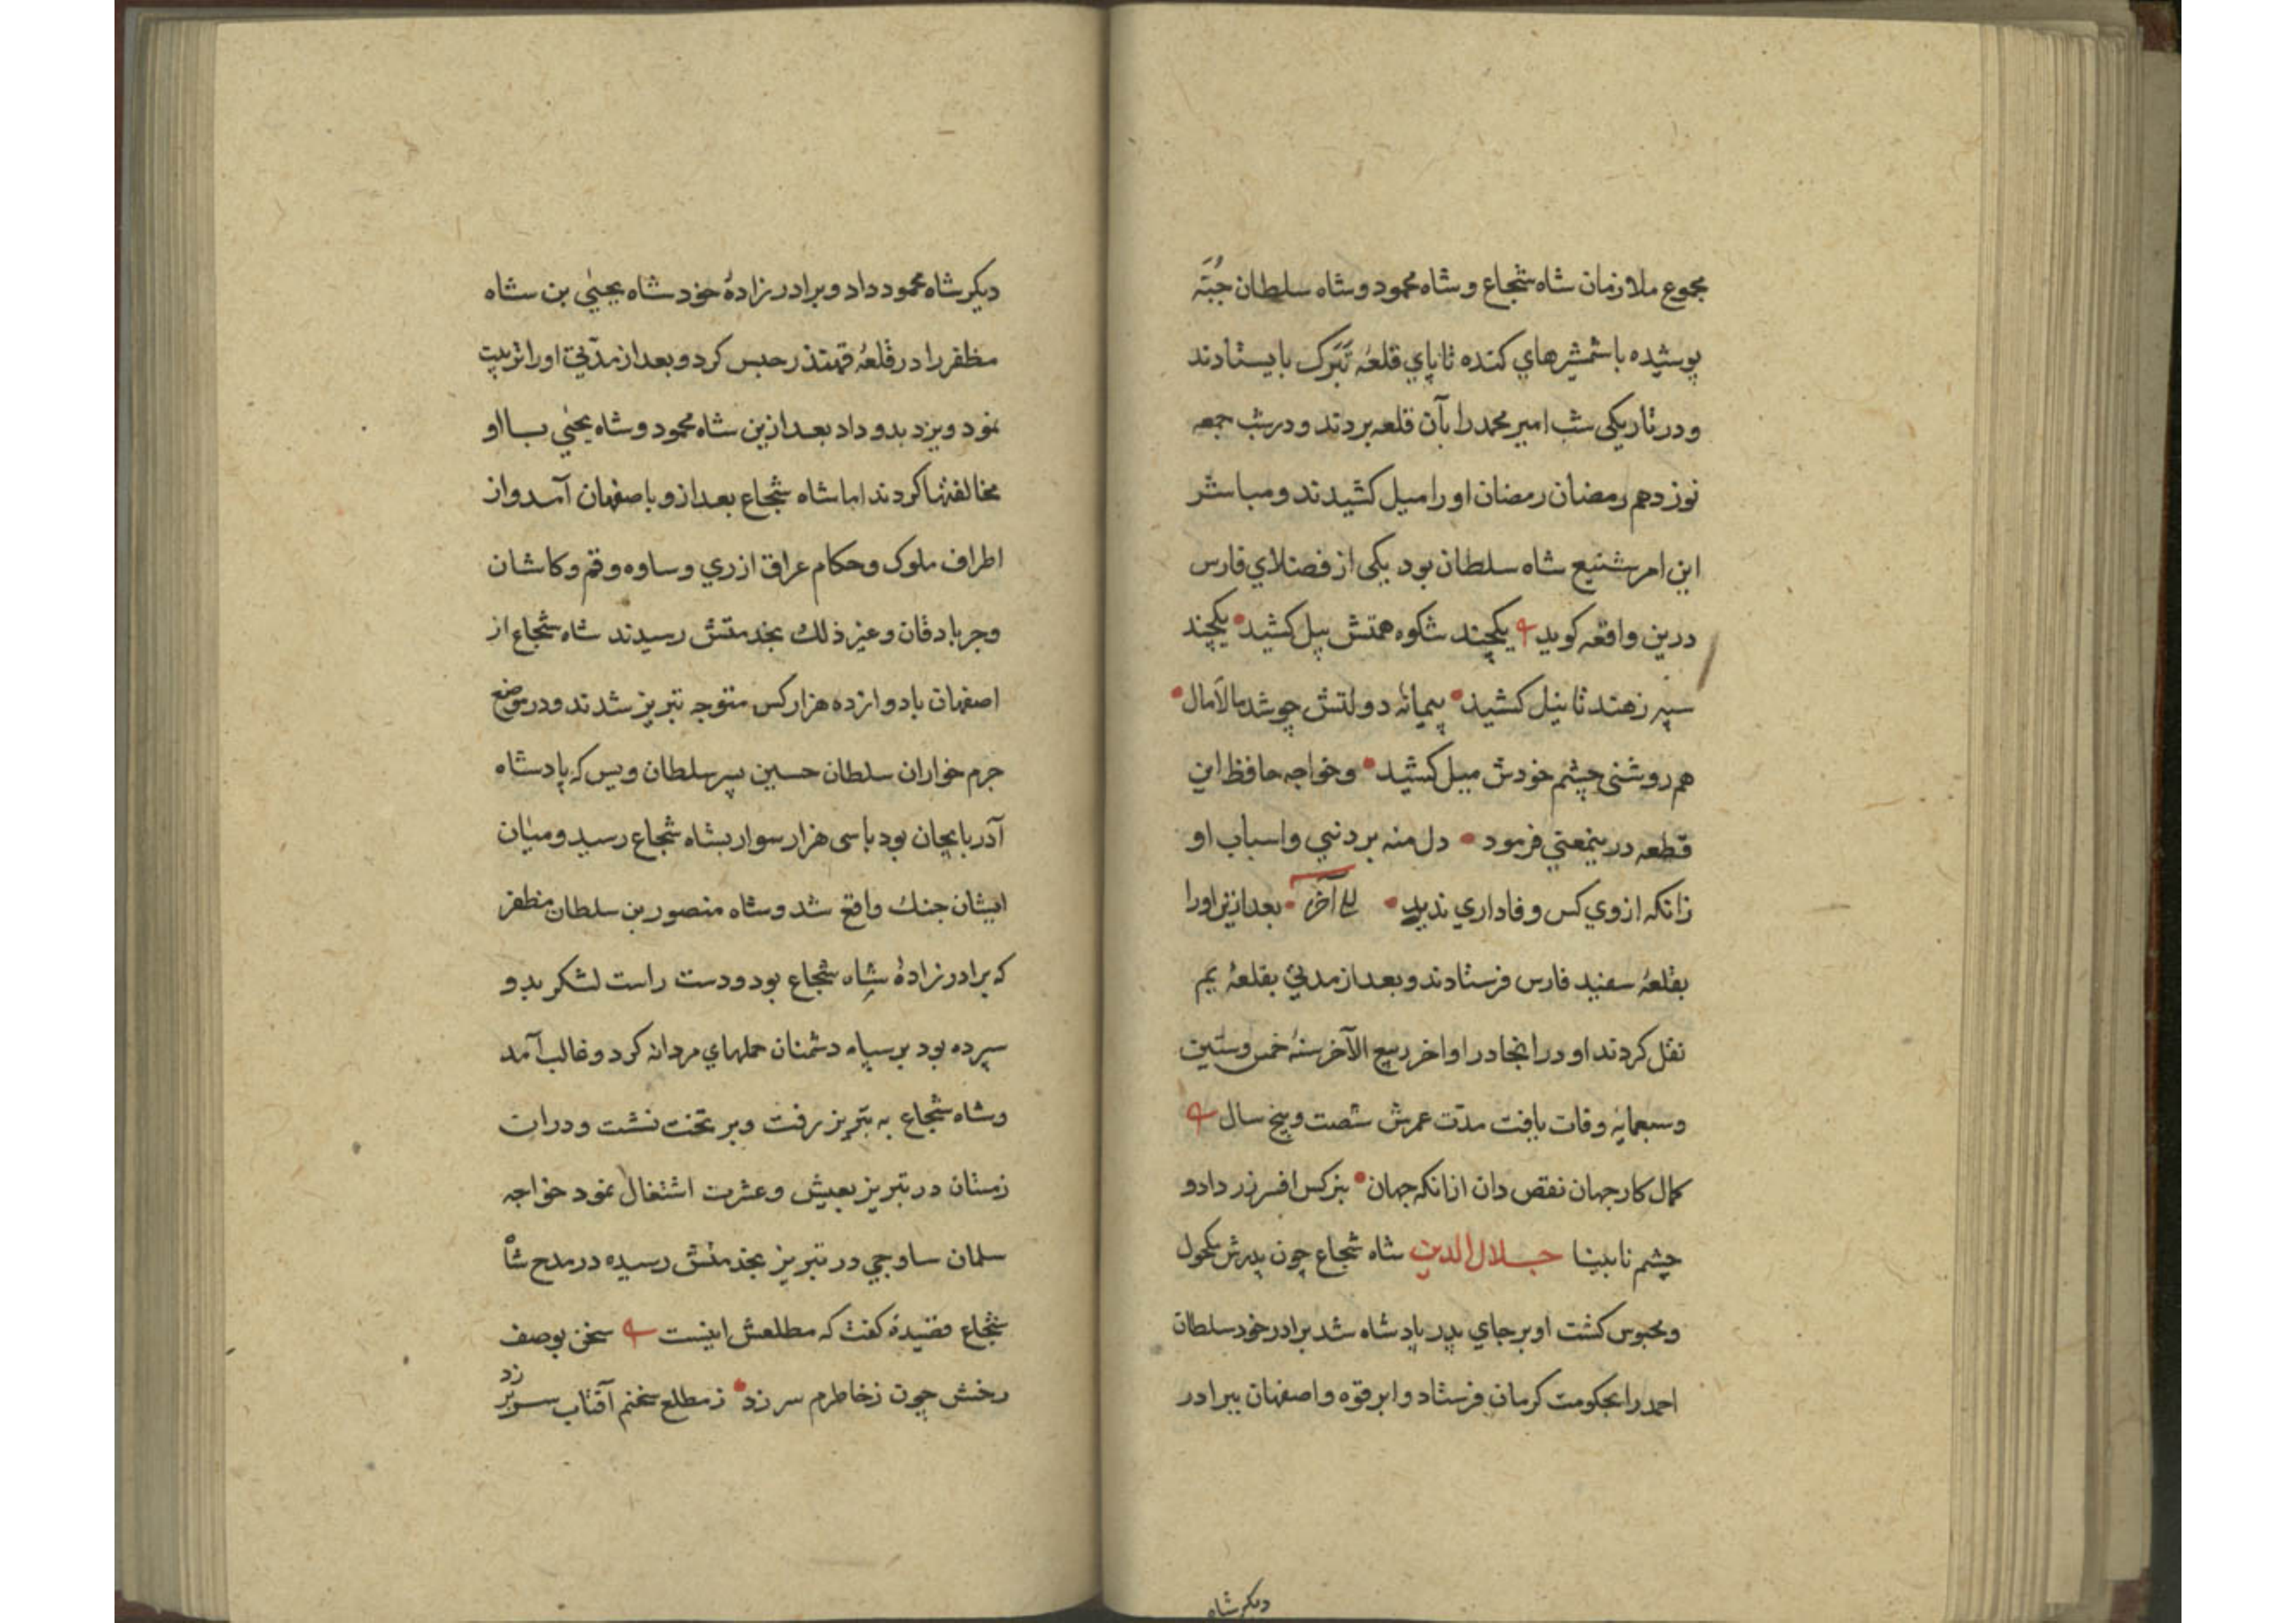 مجموع ملازمان شاه شجاع و شاه محمود و شاه سلطان جُبَّه
پوشیده با شمشیرهاي کنده تا پاي قلعهٔ تَبَرک بایستادند
و در تاریکی شب امیر محمد را بآن قلعه بردند و در شب جمعه
نوزدهم رمضان رمضان او را میل کشیدند و مباشر
این امر شنیع شاه سلطان بود یکی از فضلاي فارس
درین واقعه کوید یکچند شکوه همتش پیل کشید یکچند
سپر زهند تا نیل کشید پیمانهٔ دولتش چو شد مالامال
هم روشنی چشم خودش میل کشید و خواجه حافظ این
قطعه درینمعني فرمود دل منه بر دنیي و اسباب او
زانکه از وي کس وفاداري ندید الی آخره بعد ازین او را
بقلعهٔ سفید فارس فرستادند و بعد از مدتي بقلعهٔ بم
نقل کردند او در انجا در اواخر ربیع الآخر سنهٔ خمس وستین
وسبعمایه وفات یافت مدّت عمرش شصت و پنج سال
کمال کار جهان نقص دان ازانکه جهان بنرکس افسر زر داد و
چشم نابینا جلال الدین شاه شجاع چون پدرش مکحول
و محبوس کشت او بر جاي پدر پادشاه شد برادر خود سلطان
احمد را بحکومت کرمان فرستاد و ابرقوه و اصفهان ببرادر
دیکر شاه
دیکر شاه محمود داد و برادر زادهٔ خود شاه یحیٰي بن شاه
مظفر را در قلعهٔ قهندز حبس کرد و بعد از مدّتي او را تربیت
نمود و یزد بدو داد بعد ازین شاه محمود و شاه یحیٰي با او
مخالفتها کردند اما شاه شجاع بعد ازو باصفهان آمد و از
اطراف ملوک و حکام عراق از ري و ساوه و قم و کاشان
و جرباد قان و غیر ذلك بخدمتش رسیدند شاه شجاع از
اصفهان با دوازده هزار کس متوجه تبریز شدند و در موضع
جرم خواران سلطان حسین پسر سلطان ویس که پادشاه
آذربایجان بود با سی هزار سوار بشاه شجاع رسید و میان
ایشان جنك واقع شد و شاه منصور بن سلطان مظفر
که برادر زادهٔ شاه شجاع بود و دست راست لشکر بدو
سپرده بود بر سپاه دشمنان حملهاي مردانه کرد و غالب آمد
و شاه شجاع به تبریز رفت و بر تخت نشت و دران
زمستان در تبریز بعیش و عشرت اشتغال نمود خواجه
سلمان ساوجي در تبریز بخدمتش رسیده در مدح شاه
شجاع قصیدهٔ کفت که مطلعش اینست سخن بوصف
رخش چون زخاطرم سر زد زمطلع سخنم آفتاب سر بر زد